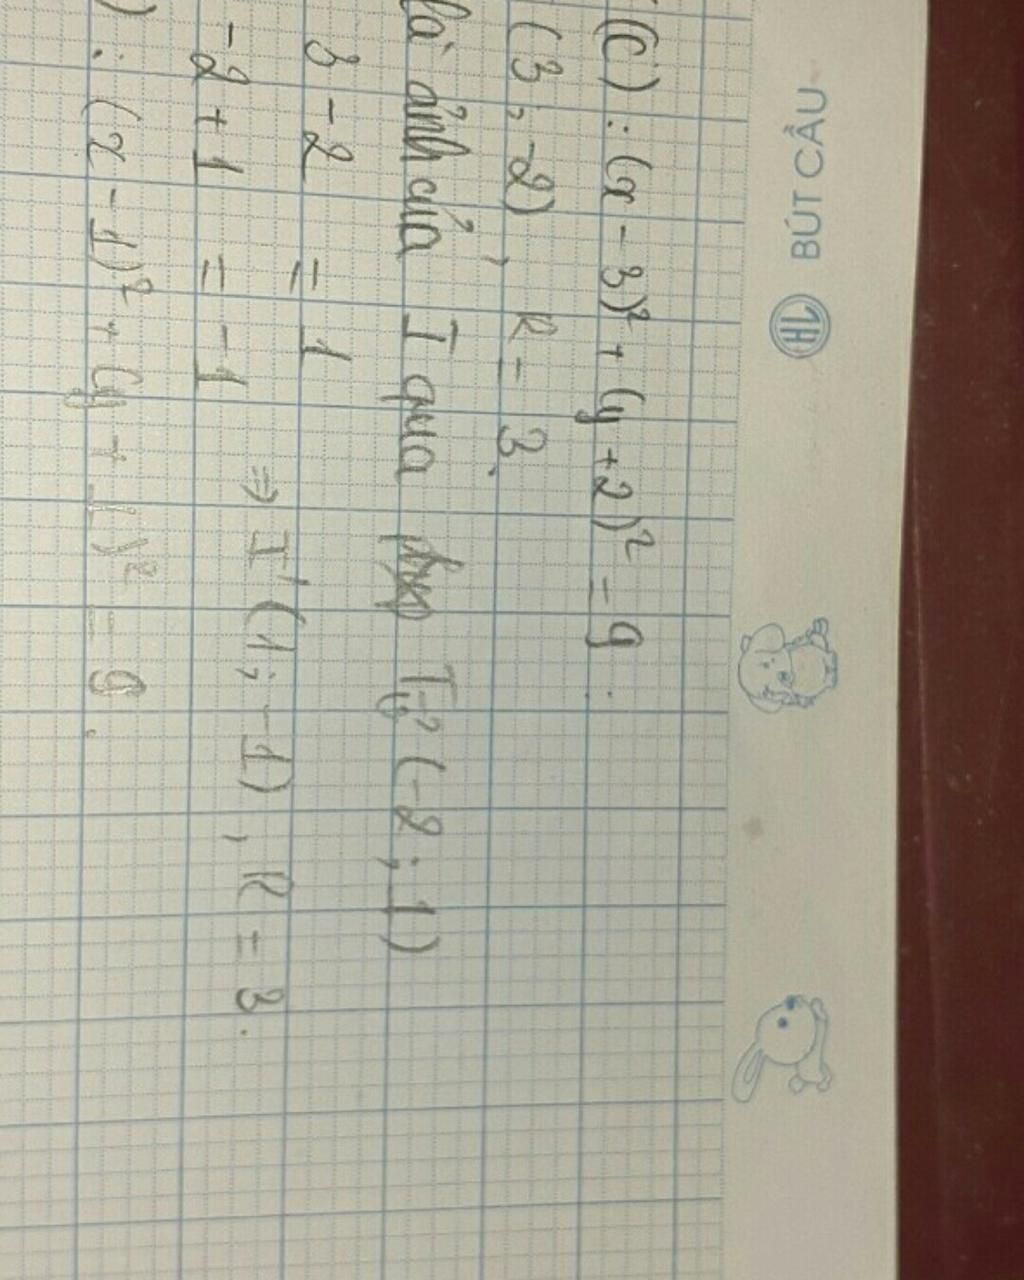 HL BÚT CẦU
(C) : (x - 3)² + (y + 2)² = 9 :
(3 ; -2) , R = 3.
là ảnh của I qua phép T (-2 ; 1)
3 - 2 = 1
-2 + 1 = -1 ⇒ I' (1 ; -1) , R = 3 .
) : (x - 1)² + (y + 1)² = 9 .